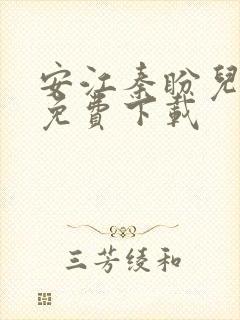 安江秦盼兒
免費下載
三芳绫和